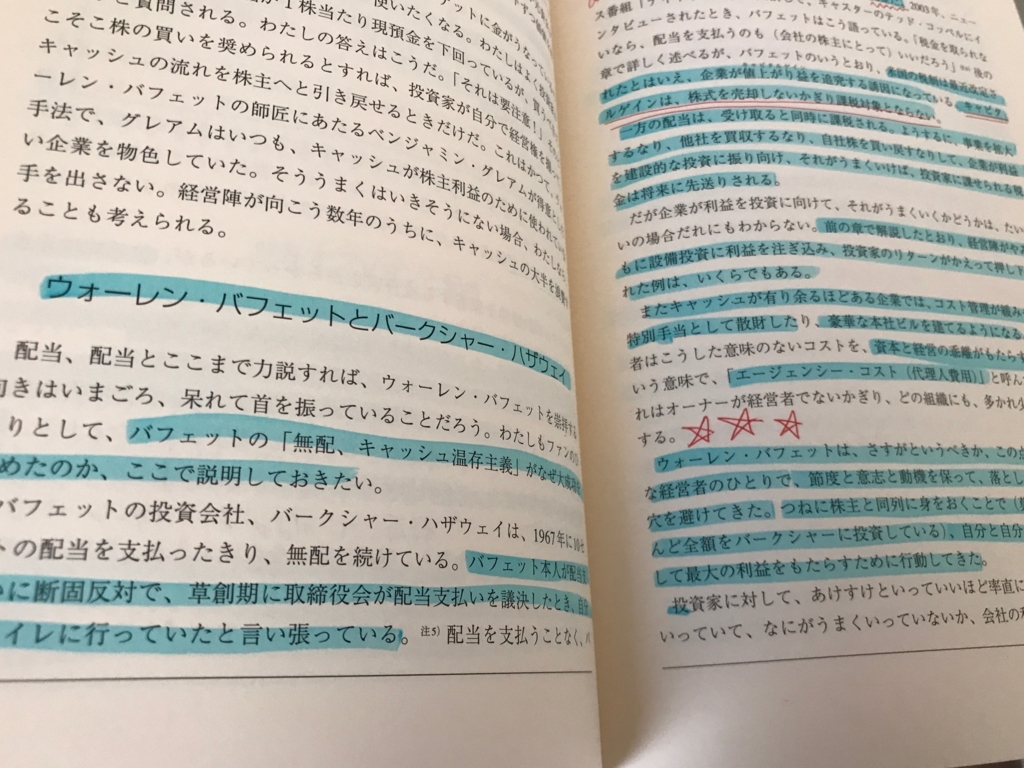 アットに金がうなって
使いたくなる。わたしはよく投資
が1株当たり現預金を下回っているが、買う
ど質問される。わたしの答えはこうだ。「それは要注意！」
こそこ株の買いを奨められるとすれば、投資家が自分で経営権を握
キャッシュの流れを株主へと引き戻せるときだけだ。これはかつて、
ーレン・バフェットの師匠にあたるベンジャミン・グレアムが得意
手法で、グレアムはいつも、キャッシュが株主利益のために使われてい
い企業を物色していた。そううまくはいきそうにない場合、わたしなら
手を出さない。経営陣が向こう数年のうちに、キャッシュの大半を
ることも考えられる。
ウォーレン・バフェットとバークシャー・ハザウェイ
配当、配当とここまで力説すれば、ウォーレン・バフェットを崇拝する
向きはいまごろ、呆れて首を振っていることだろう。わたしもファンの
りとして、バフェットの「無配、キャッシュ温存主義」がなぜ大成功
めたのか、ここで説明しておきたい。
バフェットの投資会社、バークシャー・ハザウェイは、1967年に10セ
トの配当を支払ったきり、無配を続けている。バフェット本人が配当
いに断固反対で、草創期に取締役会が配当支払いを議決したとき、自分
イレに行っていたと言い張っている。注5) 配当を支払うことなく、バ
2003年、ニュー
ス番組「ナイト
して、キャスターのテッド・コッペルにイ
ンタビューされたとき、バフェットはこう語っている。「税金を取られな
いなら、配当を支払うのも（会社の株主にとって）いいだろう」 後の
章で詳しく述べるが、バフェットのいうとおり、米国の税制は最近改定さ
れたとはいえ、企業が値上がり益を追究する誘因になっている。キャピタ
ルゲインは、株式を売却しないかぎり課税対象とならない。
一方の配当は、受け取ると同時に課税される。ようするに、事業を拡大
するなり、他社を買収するなり、自社株を買い戻すなりして、企業が利益
を建設的な投資に振り向け、それがうまくいけば、投資家に課せられる税
金は将来に先送りされる。
だが企業が利益を投資に向けて、それがうまくいくかどうかは、たい
いの場合だれにもわからない。前の章で解説したとおり、経営陣がやみ
もに設備投資に利益を注ぎ込み、投資家のリターンがかえって押し下
れた例は、いくらでもある。
またキャッシュが有り余るほどある企業では、コスト管理が緩み
特別手当として散財したり、豪華な本社ビルを建てるようになる
者はこうした意味のないコストを、資本と経営の乖離がもたらす
いう意味で、「エージェンシー・コスト（代理人費用）」と呼ん
れはオーナーが経営者でないかぎり、どの組織にも、多かれ少
する。
ウォーレン・バフェットは、さすがというべきか、この点
な経営者のひとりで、節度と意志と動機を保って、落とし
穴を避けてきた。つねに株主と同列に身をおくことで（
んど全額をバークシャーに投資している）、自分と自分
して最大の利益をもたらすために行動してきた。
投資家に対して、あけすけといっていいほど率直に
いっていて、なにがうまくいっていないか、会社の